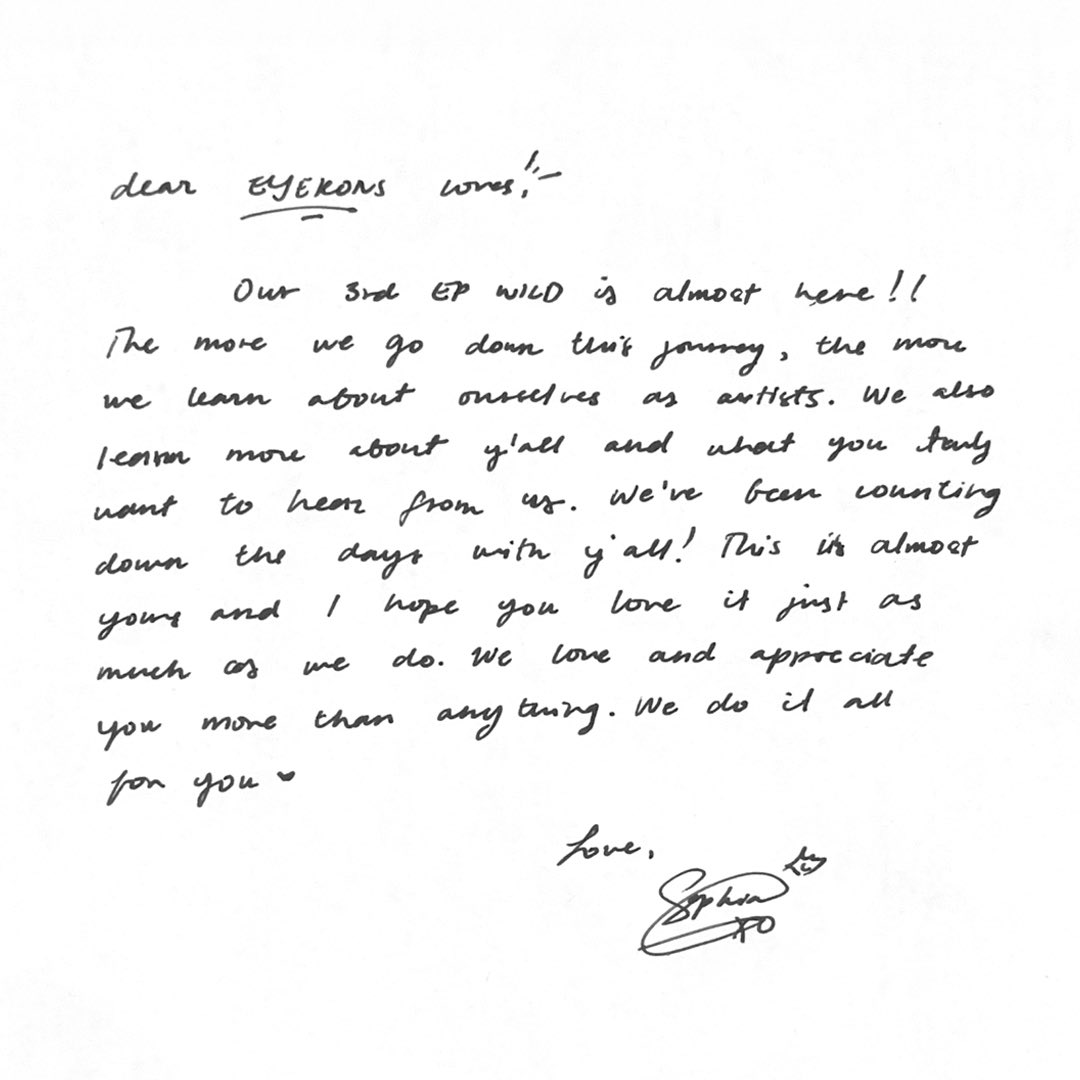 dear EYEKONS loves!
Our 3rd EP WILD is almost here!!
The more we go down this journey, the more
we learn about ourselves as artists. We also
learn more about y'all and what you truly
want to hear from us. We've been counting
down the days with y'all! This is almost
yours and I hope you love it just as
much as we do. We love and appreciate
you more than anything. We do it all
for you ♥
Love,
Sophia
XO